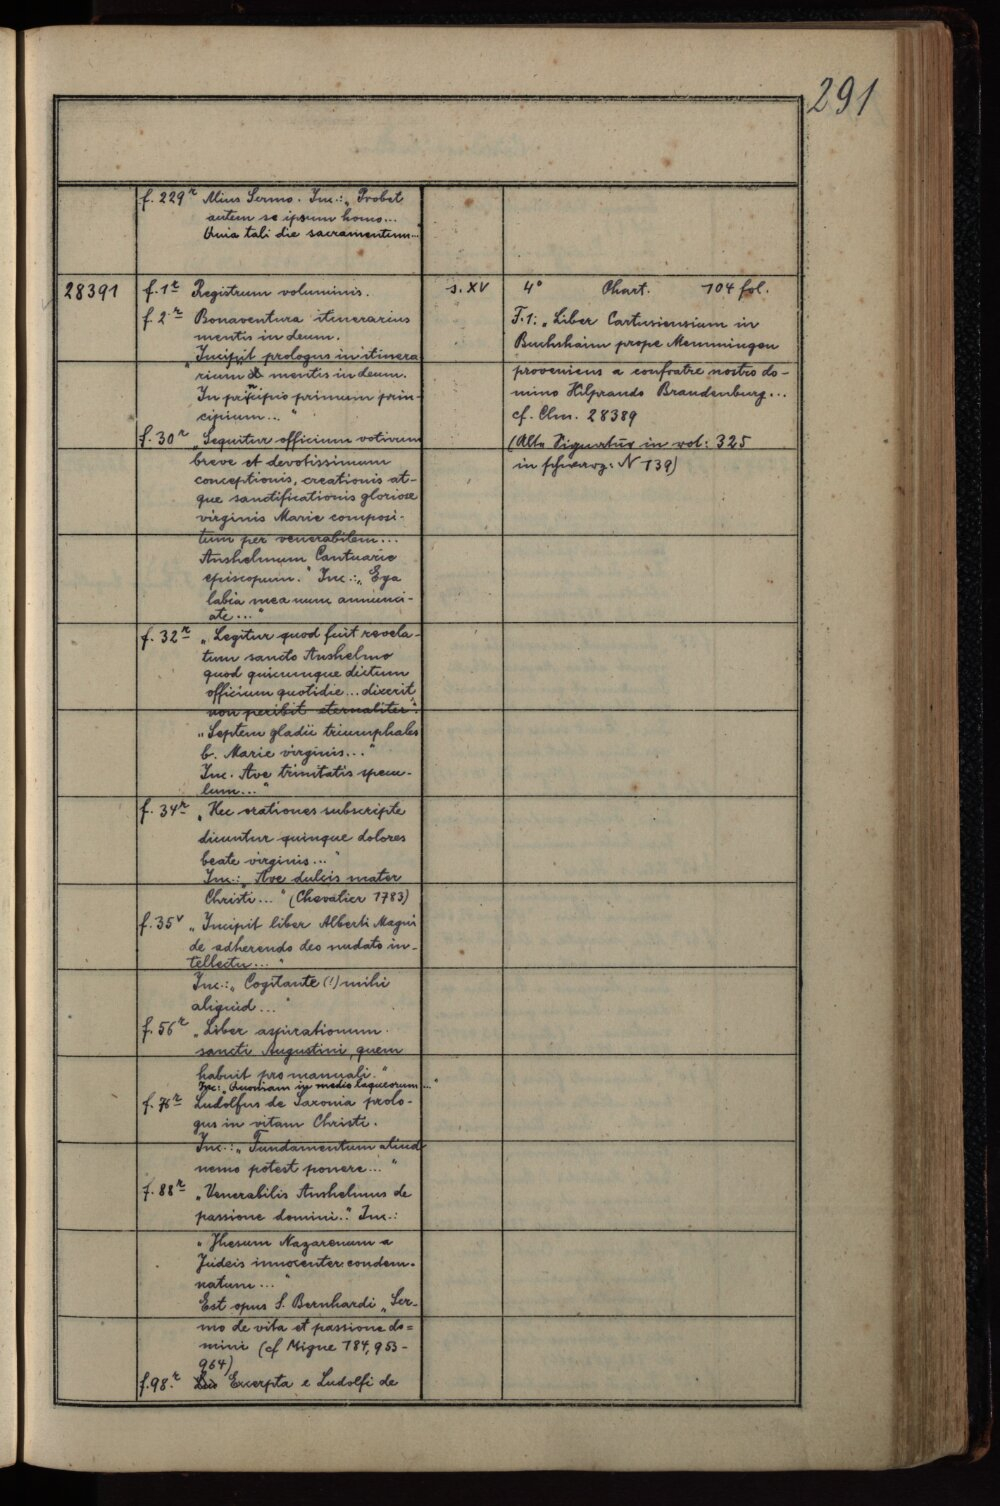 291
f. 229r Alius Sermo. Inc.: „Probet
autem se ipsum homo...
Quia tali die sacramentum..."
28391 f. 1r Registrum voluminis. s. XV 4° Chart. 104 fol.
f. 2r Bonaventura itinerarius
mentis in deum.
„Incipit prologus in itinera
rium mentis in deum.
In principio primum prin-
cipium..."
f. 30r „Sequitur officium votivum
breve et devotissimum
conceptionis, creationis at-
que sanctificationis gloriose
virginis Marie composi-
tum per venerabilem...
Anshelmum Cantuarie
episcopum." Inc.: „Eya
labia mea nunc annunci-
ate..."
f. 32r „Legitur quod fuit revela-
tum sancto Anshelmo
quod quicumque dictum
officium quotidie... dixerit
non peribit eternaliter".
„Septem gladii triumphales
b. Marie virginis..."
Inc. Ave trinitatis specu-
lum..."
f. 34r „Hec orationes subscripte
dicuntur quinque dolores
beate virginis..."
Inc.: „Ave dulcis mater
Christi..." (Chevalier 1783)
f. 35v „Incipit liber Alberti Magni
de adherendo deo nudato in-
tellectu..."
Inc.: „Cogitante (!) mihi
aliquid..."
f. 56r „Liber aspirationum
sancti Augustini, quem
habuit pro manuali."
Inc.: „Quoniam in medio laqueorum..."
f. 76r Ludolfus de Saxonia prolo-
gus in vitam Christi.
Inc.: „Fundamentum aliud
nemo potest ponere..."
f. 88r „Venerabilis Anshelmus de
passione domini." Inc.:
„Jhesum Nazarenum a
Judeis innocenter condem-
natum..."
Est opus S. Bernhardi „Ser-
mo de vita et passione do=
mini (cf Migne 184, 953-
964)
f. 98r Excerpta e Ludolfi de
F. 1: „Liber Cartusiensium in
Buchshaim prope Memmingen
proveniens a confratre nostro do-
mino Hilprando Brandenburg...
cf. Clm. 28389
(Alte Signatur in vol: 325
in schwarz: N 139)